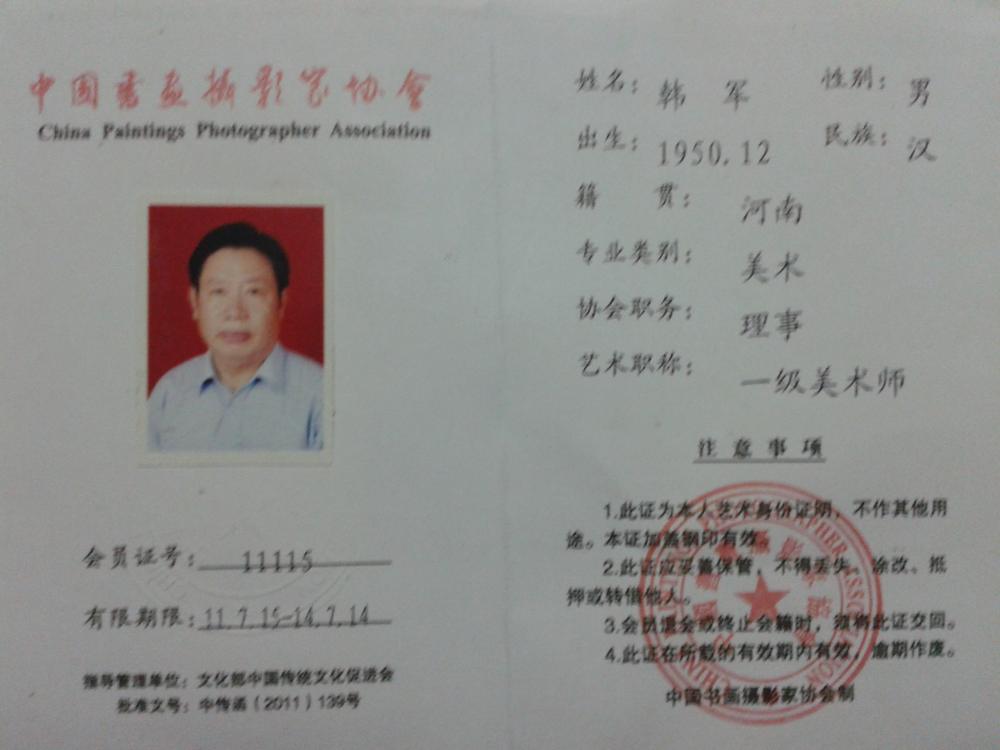 中国书画摄影家协会
China Paintings Photographer Association
会员证号：11115
有限期限：11.7.15-14.7.14
指导管理单位：文化部中国传统文化促进会
批准文号：中传函（2011）139号
姓名：韩 军 性别：男
出生：1950.12 民族：汉
籍 贯：河南
专业类别：美术
协会职务：理事
艺术职称：一级美术师
注意事项
1.此证为本人艺术身份证明，不作其他用
途。本证加盖钢印有效。
2.此证应妥善保管，不得丢失，涂改、抵
押或转借他人。
3.会员退会或终止会籍时，须将此证交回。
4.此证在所载的有效期内有效，逾期作废。
中国书画摄影家协会制